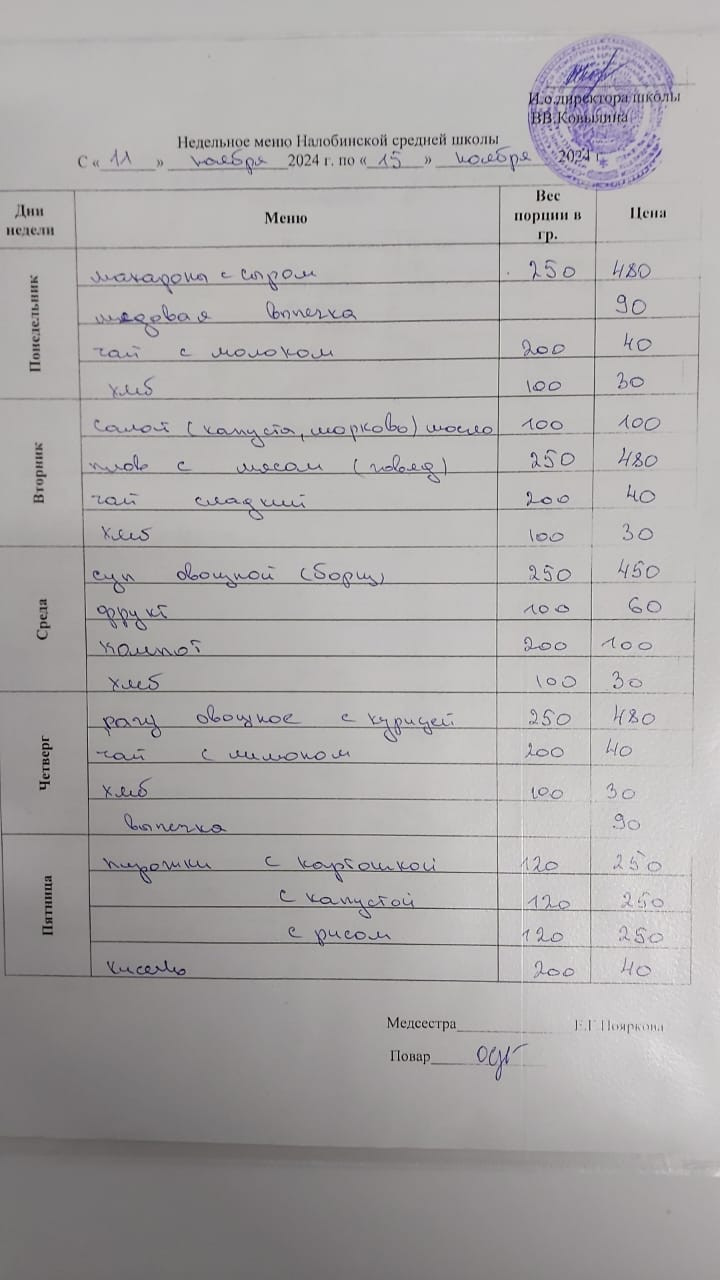 И.о.директора школы
В.В.Ковылина
Недельное меню Налобинской средней школы
С « 11 » ноября 2024 г. по « 15 » ноября 2024 г.
Дни недели Меню Вес порции в гр. Цена
Понедельник
макароны с сыром 250 480
медовая выпечка 90
чай с молоком 200 40
хлеб 100 30
Вторник
салат (капуста, морковь) масло 100 100
плов с мясом (говяд) 250 480
чай сладкий 200 40
хлеб 100 30
Среда
суп овощной (борщ) 250 450
фрукт 100 60
компот 200 100
хлеб 100 30
Четверг
рагу овощное с курицей 250 480
чай с лимоном 200 40
хлеб 100 30
выпечка 90
Пятница
пирожки с картошкой 120 250
с капустой 120 250
с рисом 120 250
кисель 200 40
Медсестра Е.Г Пояркова
Повар